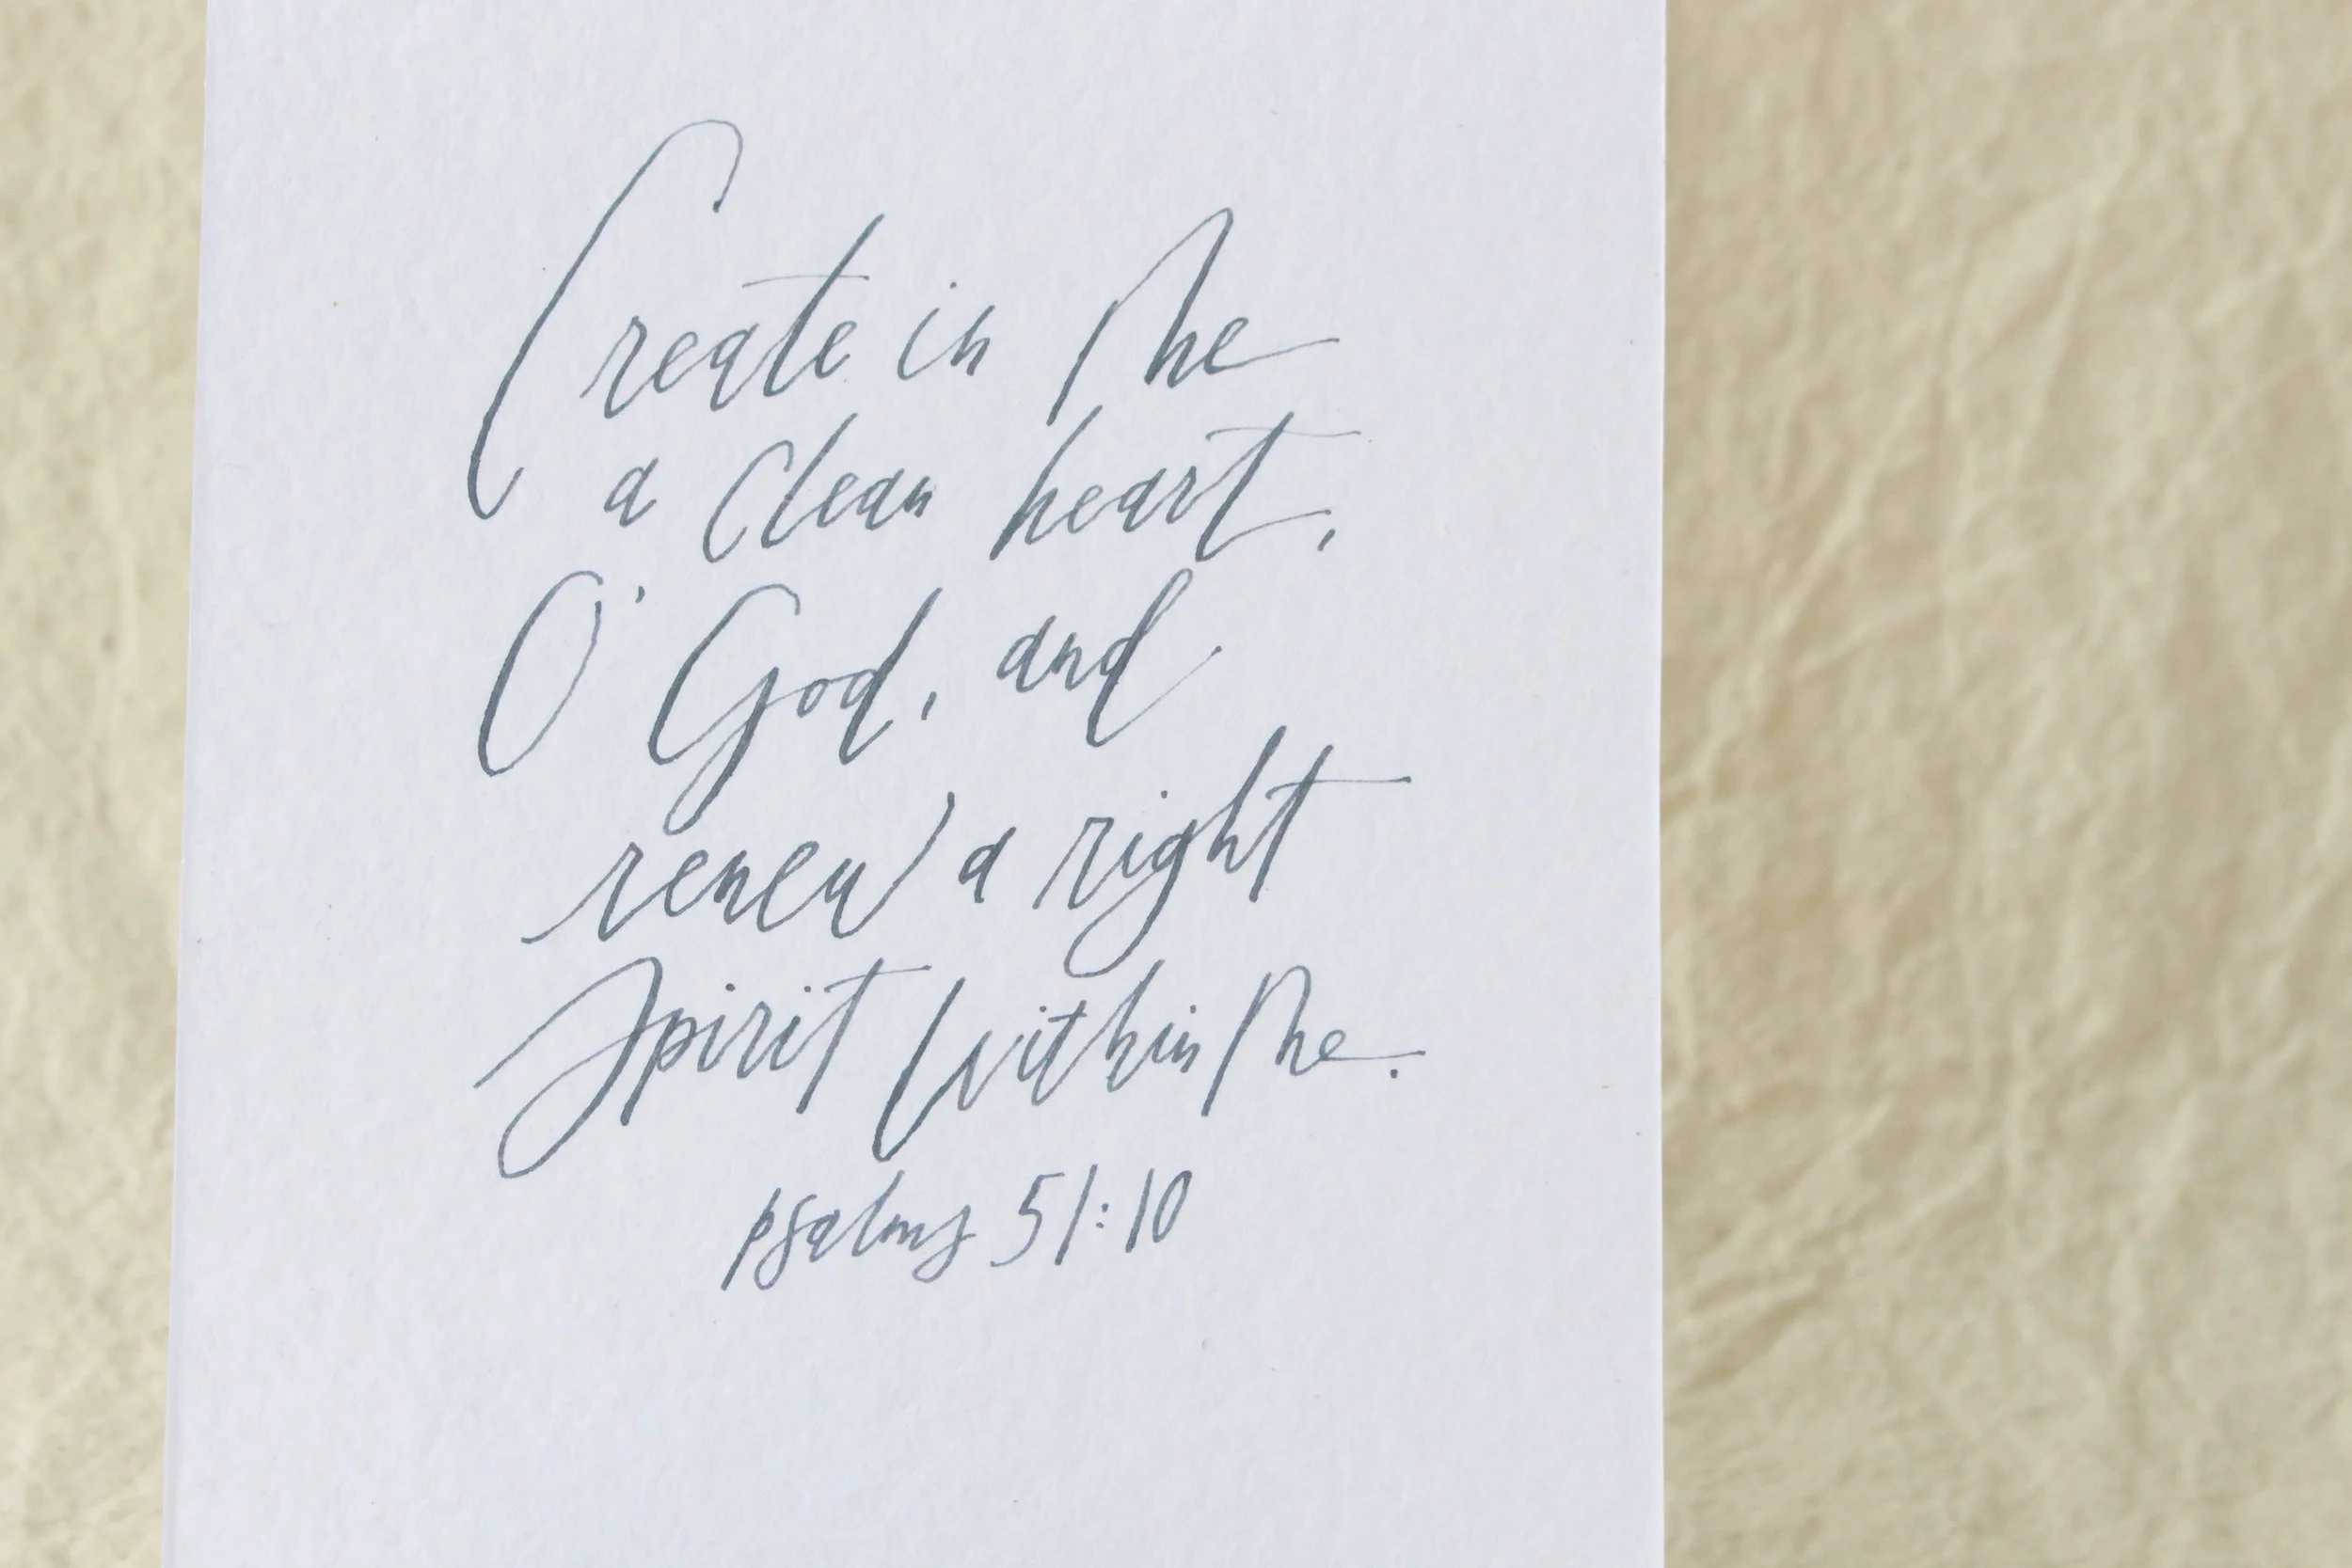 Create in Me
a Clean heart,
O' God, and
renew a right
Spirit Within Me.
psalms 51:10